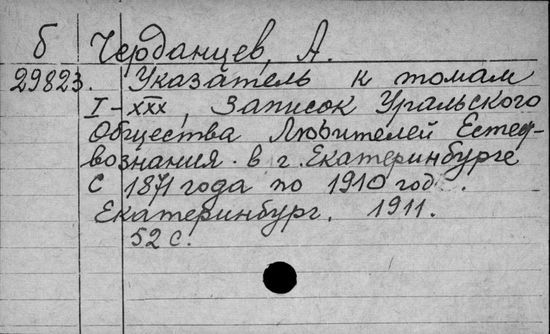 б Черданцев, А.
29823. Указатель к томам
I-XXX, Записок Уральского
Общества Любителей Естест-
вознания в г. Екатеринбурге
с 1871 года по 1910 год.
Екатеринбург. 1911.
52 с.